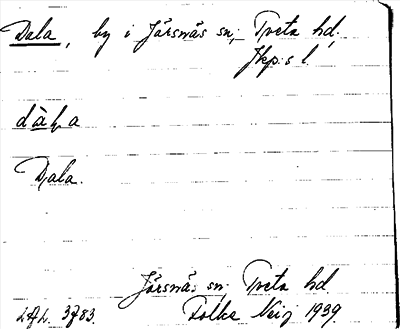 Dala, by i Järsnäs sn, Tveta hd,
Jkp:s l.
dàla
Dala.
Järsnäs sn Tveta hd.
LAL. 3783. Folke Neij 1939.